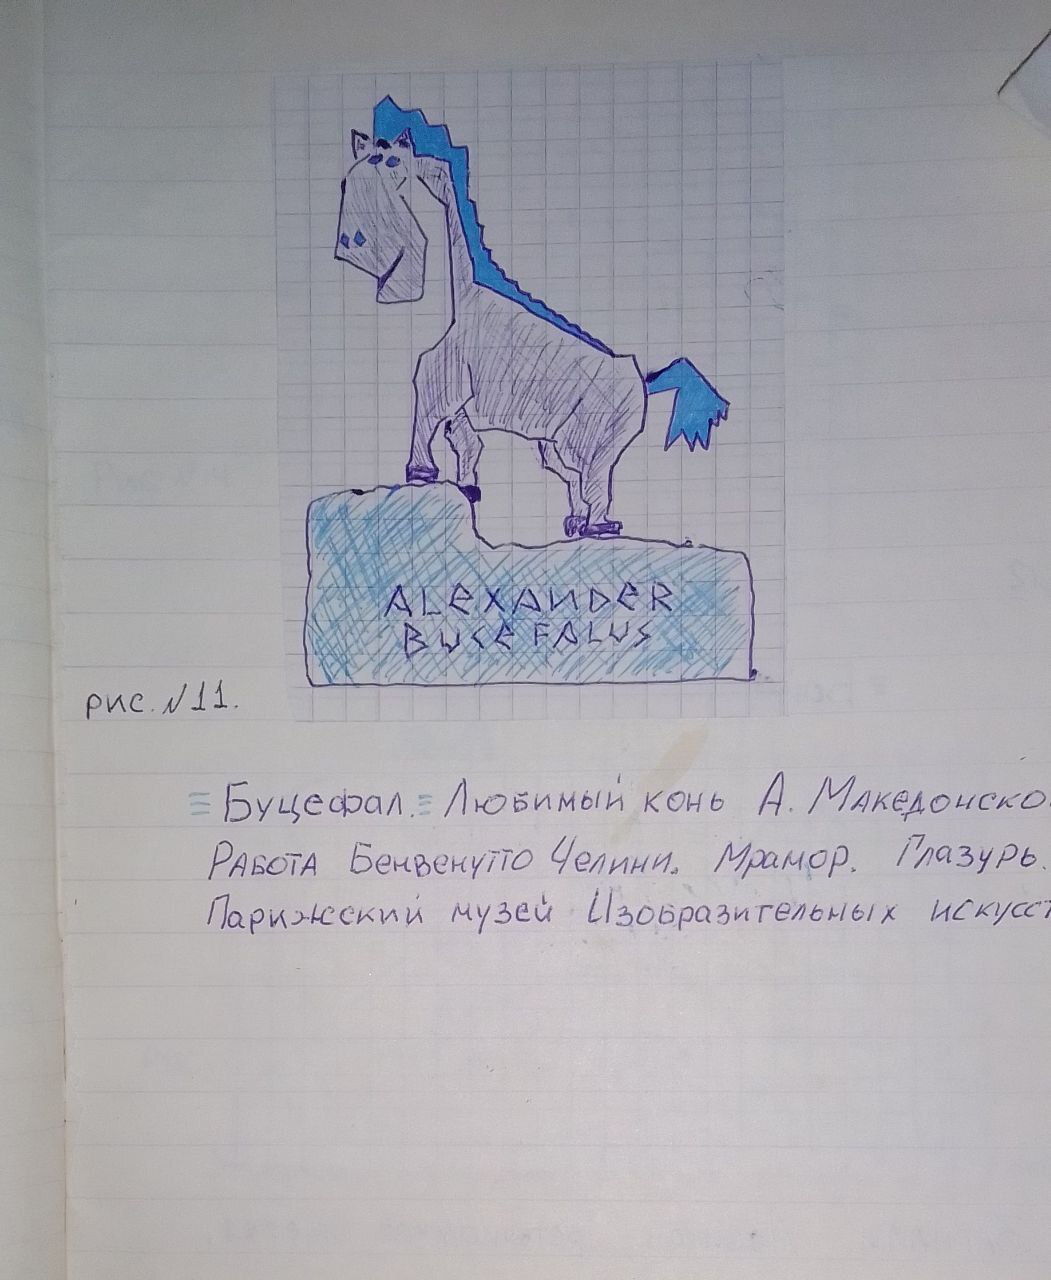 ALEXANDER
BUSEFALUS
рис. №11.
Буцефал. Любимый конь А. Македонско
Работа Бенвенутто Челини. Мрамор. Глазурь.
Парижский музей Изобразительных искусст